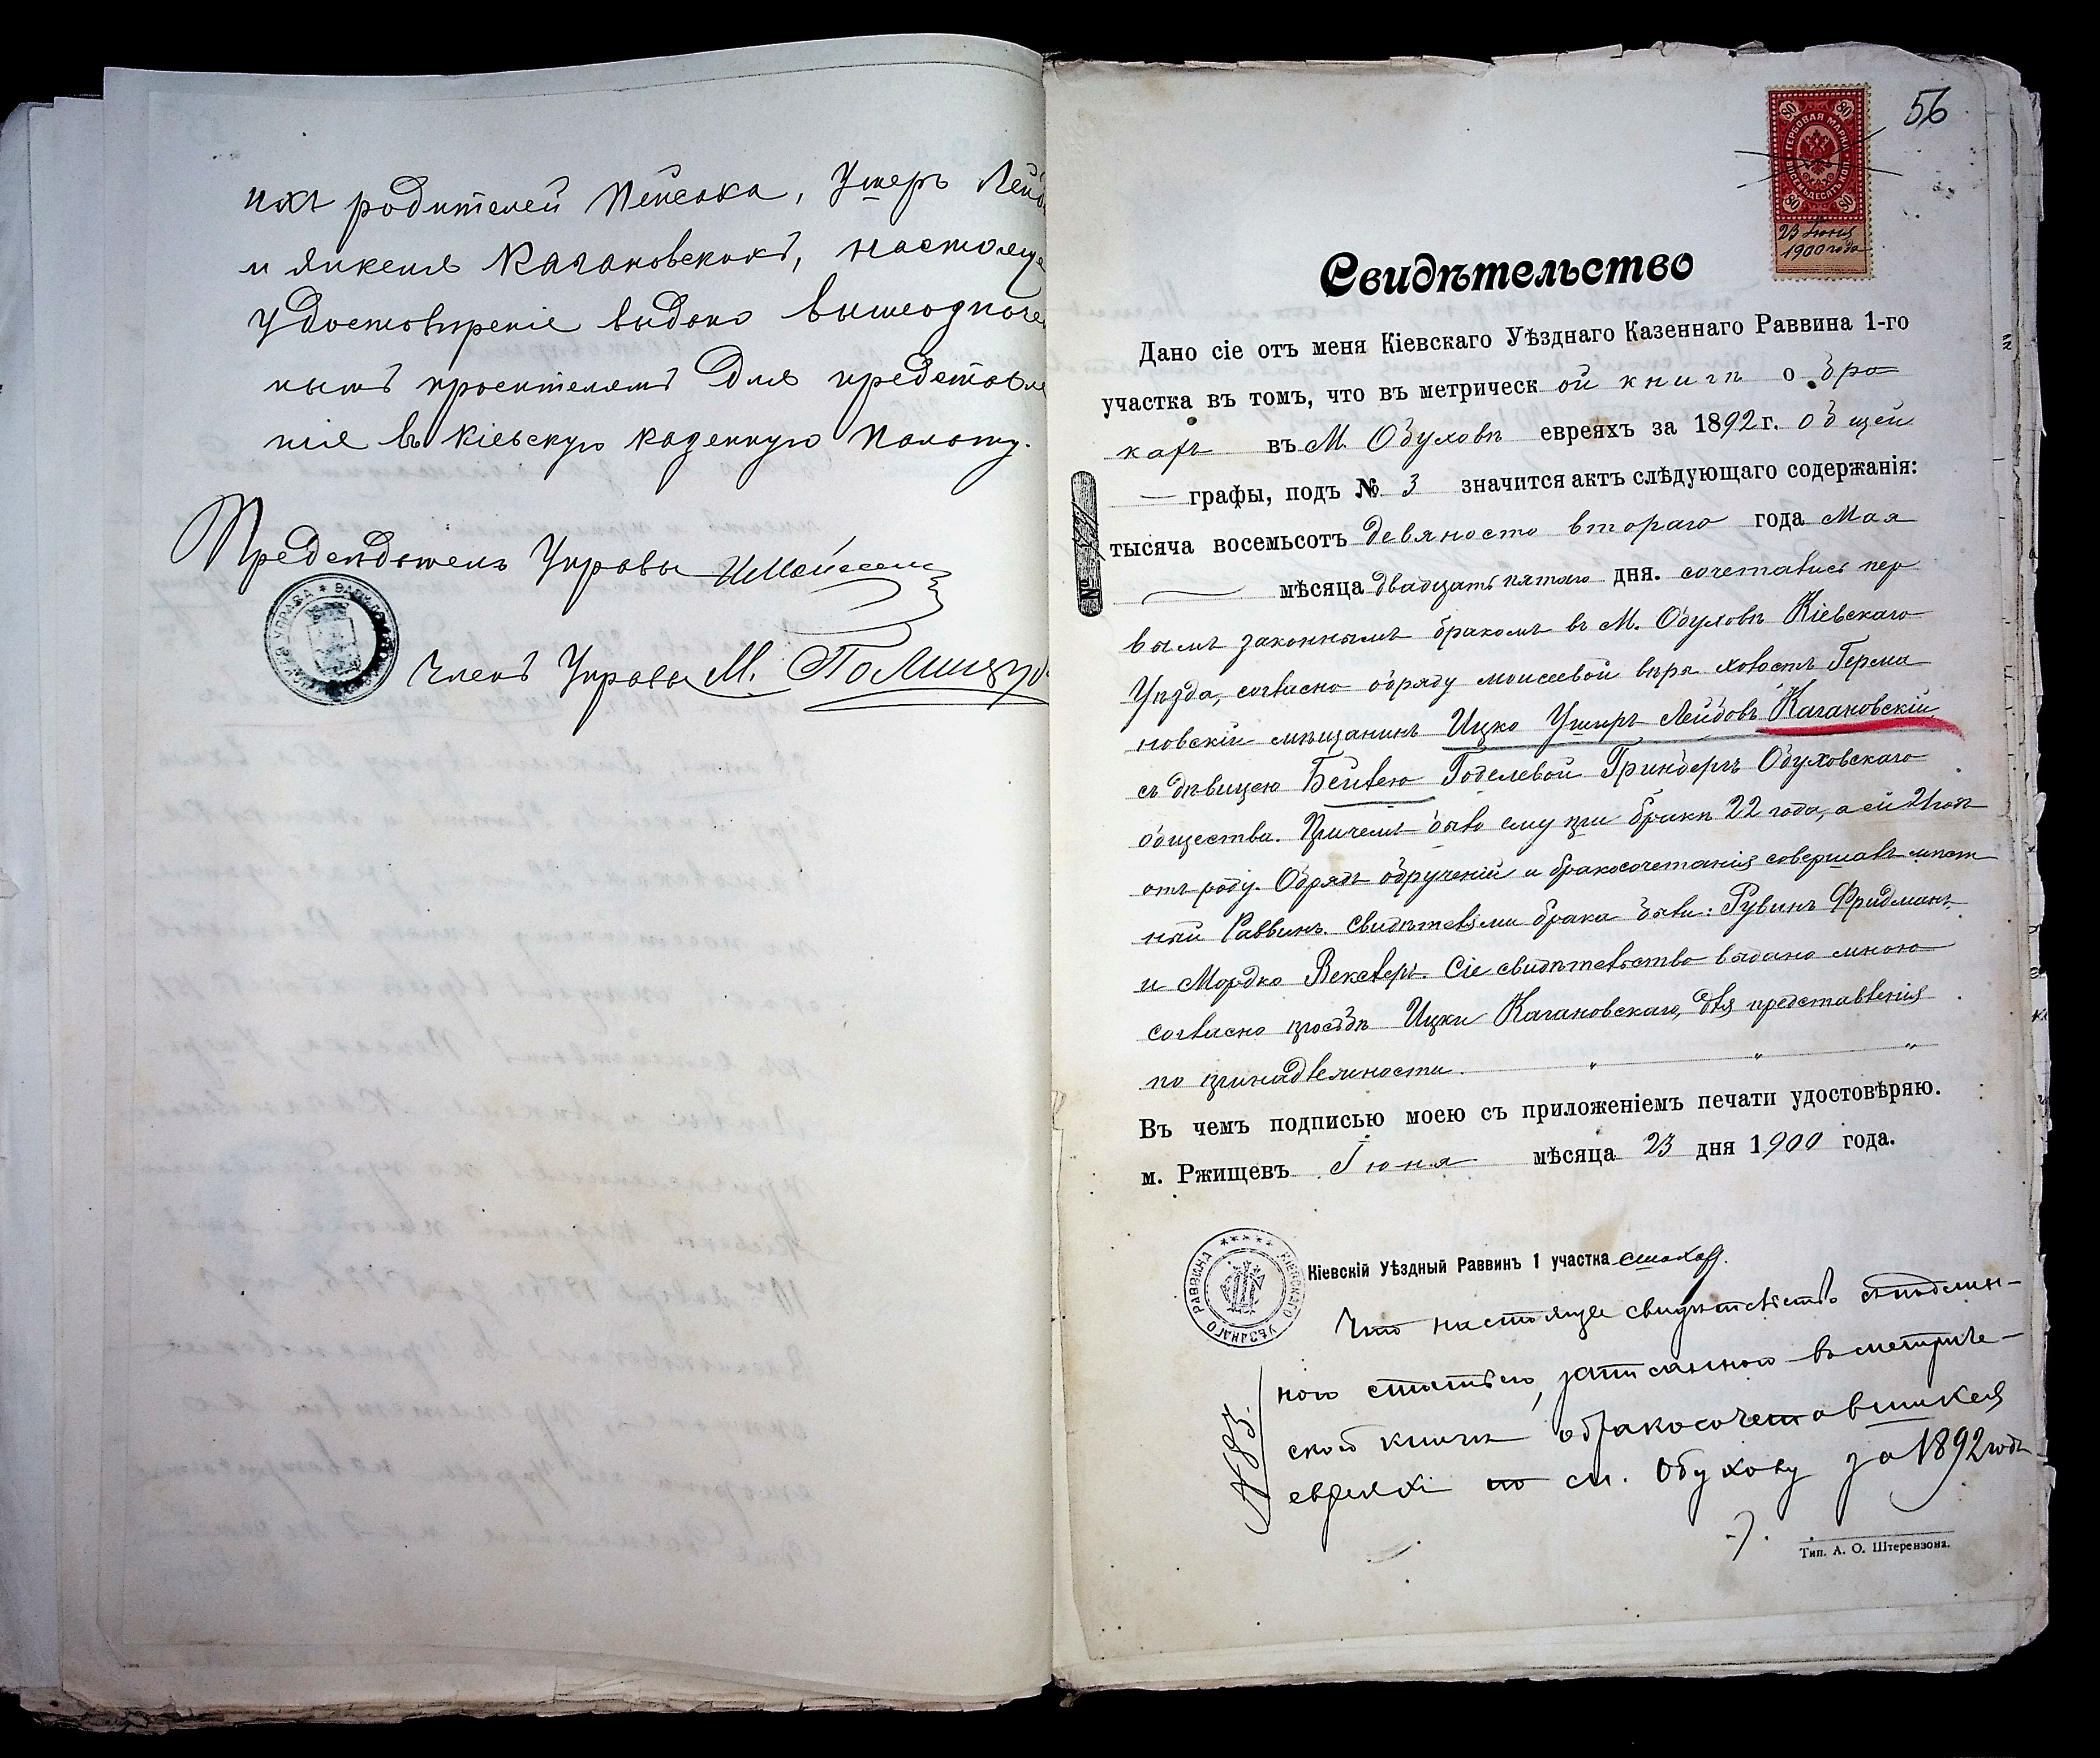 ихъ родителей Пейсаха, Ушеръ Лейб
и Янкеля Кагановскихъ, настояще
удостовѣреніе выдано вышеозначе
нымъ просителямъ для представле
нія въ Кіевскую казенную Палату.
Предсѣдатель Управы
Членъ Управы М.
56
ГЕРБОВАЯ МАРКА
ВОСЕМЬДЕСЯТЪ КОП.
80 80
80 80
23 Іюня
1900 года
Свидѣтельство
Дано сіе отъ меня Кіевскаго Уѣзднаго Казеннаго Раввина 1-го
участка въ томъ, что въ метрической книгѣ о бра
кахъ въ М. Обуховѣ евреяхъ за 1892 г. общей
графы, подъ № 3 значится актъ слѣдующаго содержанія:
тысяча восемьсотъ девяносто втораго года Мая
мѣсяца двадцать пятаго дня. сочетались пер
вымъ законнымъ бракомъ въ М. Обуховѣ Кіевскаго
Уѣзда, согласно обряду моисеевой вѣры холостъ Герма
новскій мѣщанинъ Ицко Ушеръ Лейбовъ Кагановскій
съ дѣвицею Бейлею Годелевой Гринбергъ Обуховскаго
общества. Причемъ было ему при бракѣ 22 года, а ей 21 годъ
отъ роду. Обрядъ обрученій и бракосочетанія совершалъ мѣст
ный Раввинъ. Свидѣтелями брака были: Рувинъ Фридманъ
и Мордко Векслеръ. Сіе свидѣтельство выдано мною
согласно прозьбѣ Ицки Кагановскаго, для представленія
по принадлежности.
Въ чемъ подписью моею съ приложеніемъ печати удостовѣряю.
м. Ржищевъ Іюня мѣсяца 23 дня 1900 года.
Кіевскій Уѣздный Раввинъ 1 участка
КІЕВСКАГО УѢЗДНАГО РАВВИНА
Что настоящее свидѣтельство съ подлин-
ною статьею, записанною въ метриче-
ской книгѣ о бракосочетавшихся
евреяхъ по м. Обухову за 1892 годъ
Тип. А. О. Штерензона.